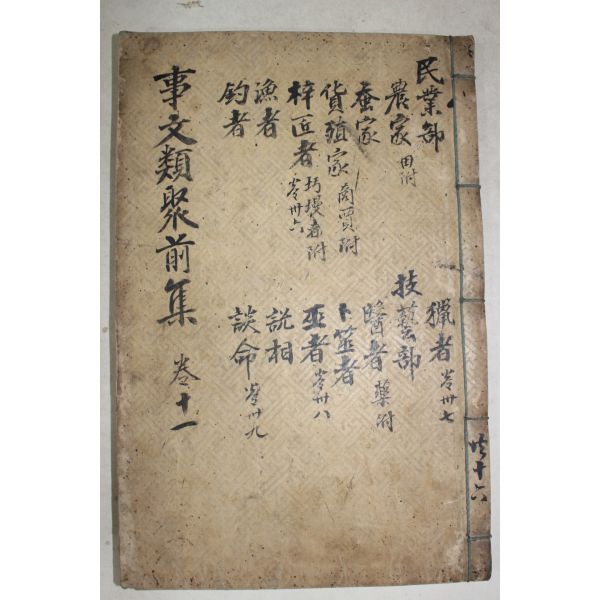 民業部
農家 田附
蚕家
貨殖家 商賈附
梓匠者 圬墁者附 卷卅六
漁者
釣者
獵者 卷卅七
技藝部
醫者 藥附
卜筮者
巫者 卷卅八
説相
談命 卷卅九
事文類聚前集 卷十一
共十六